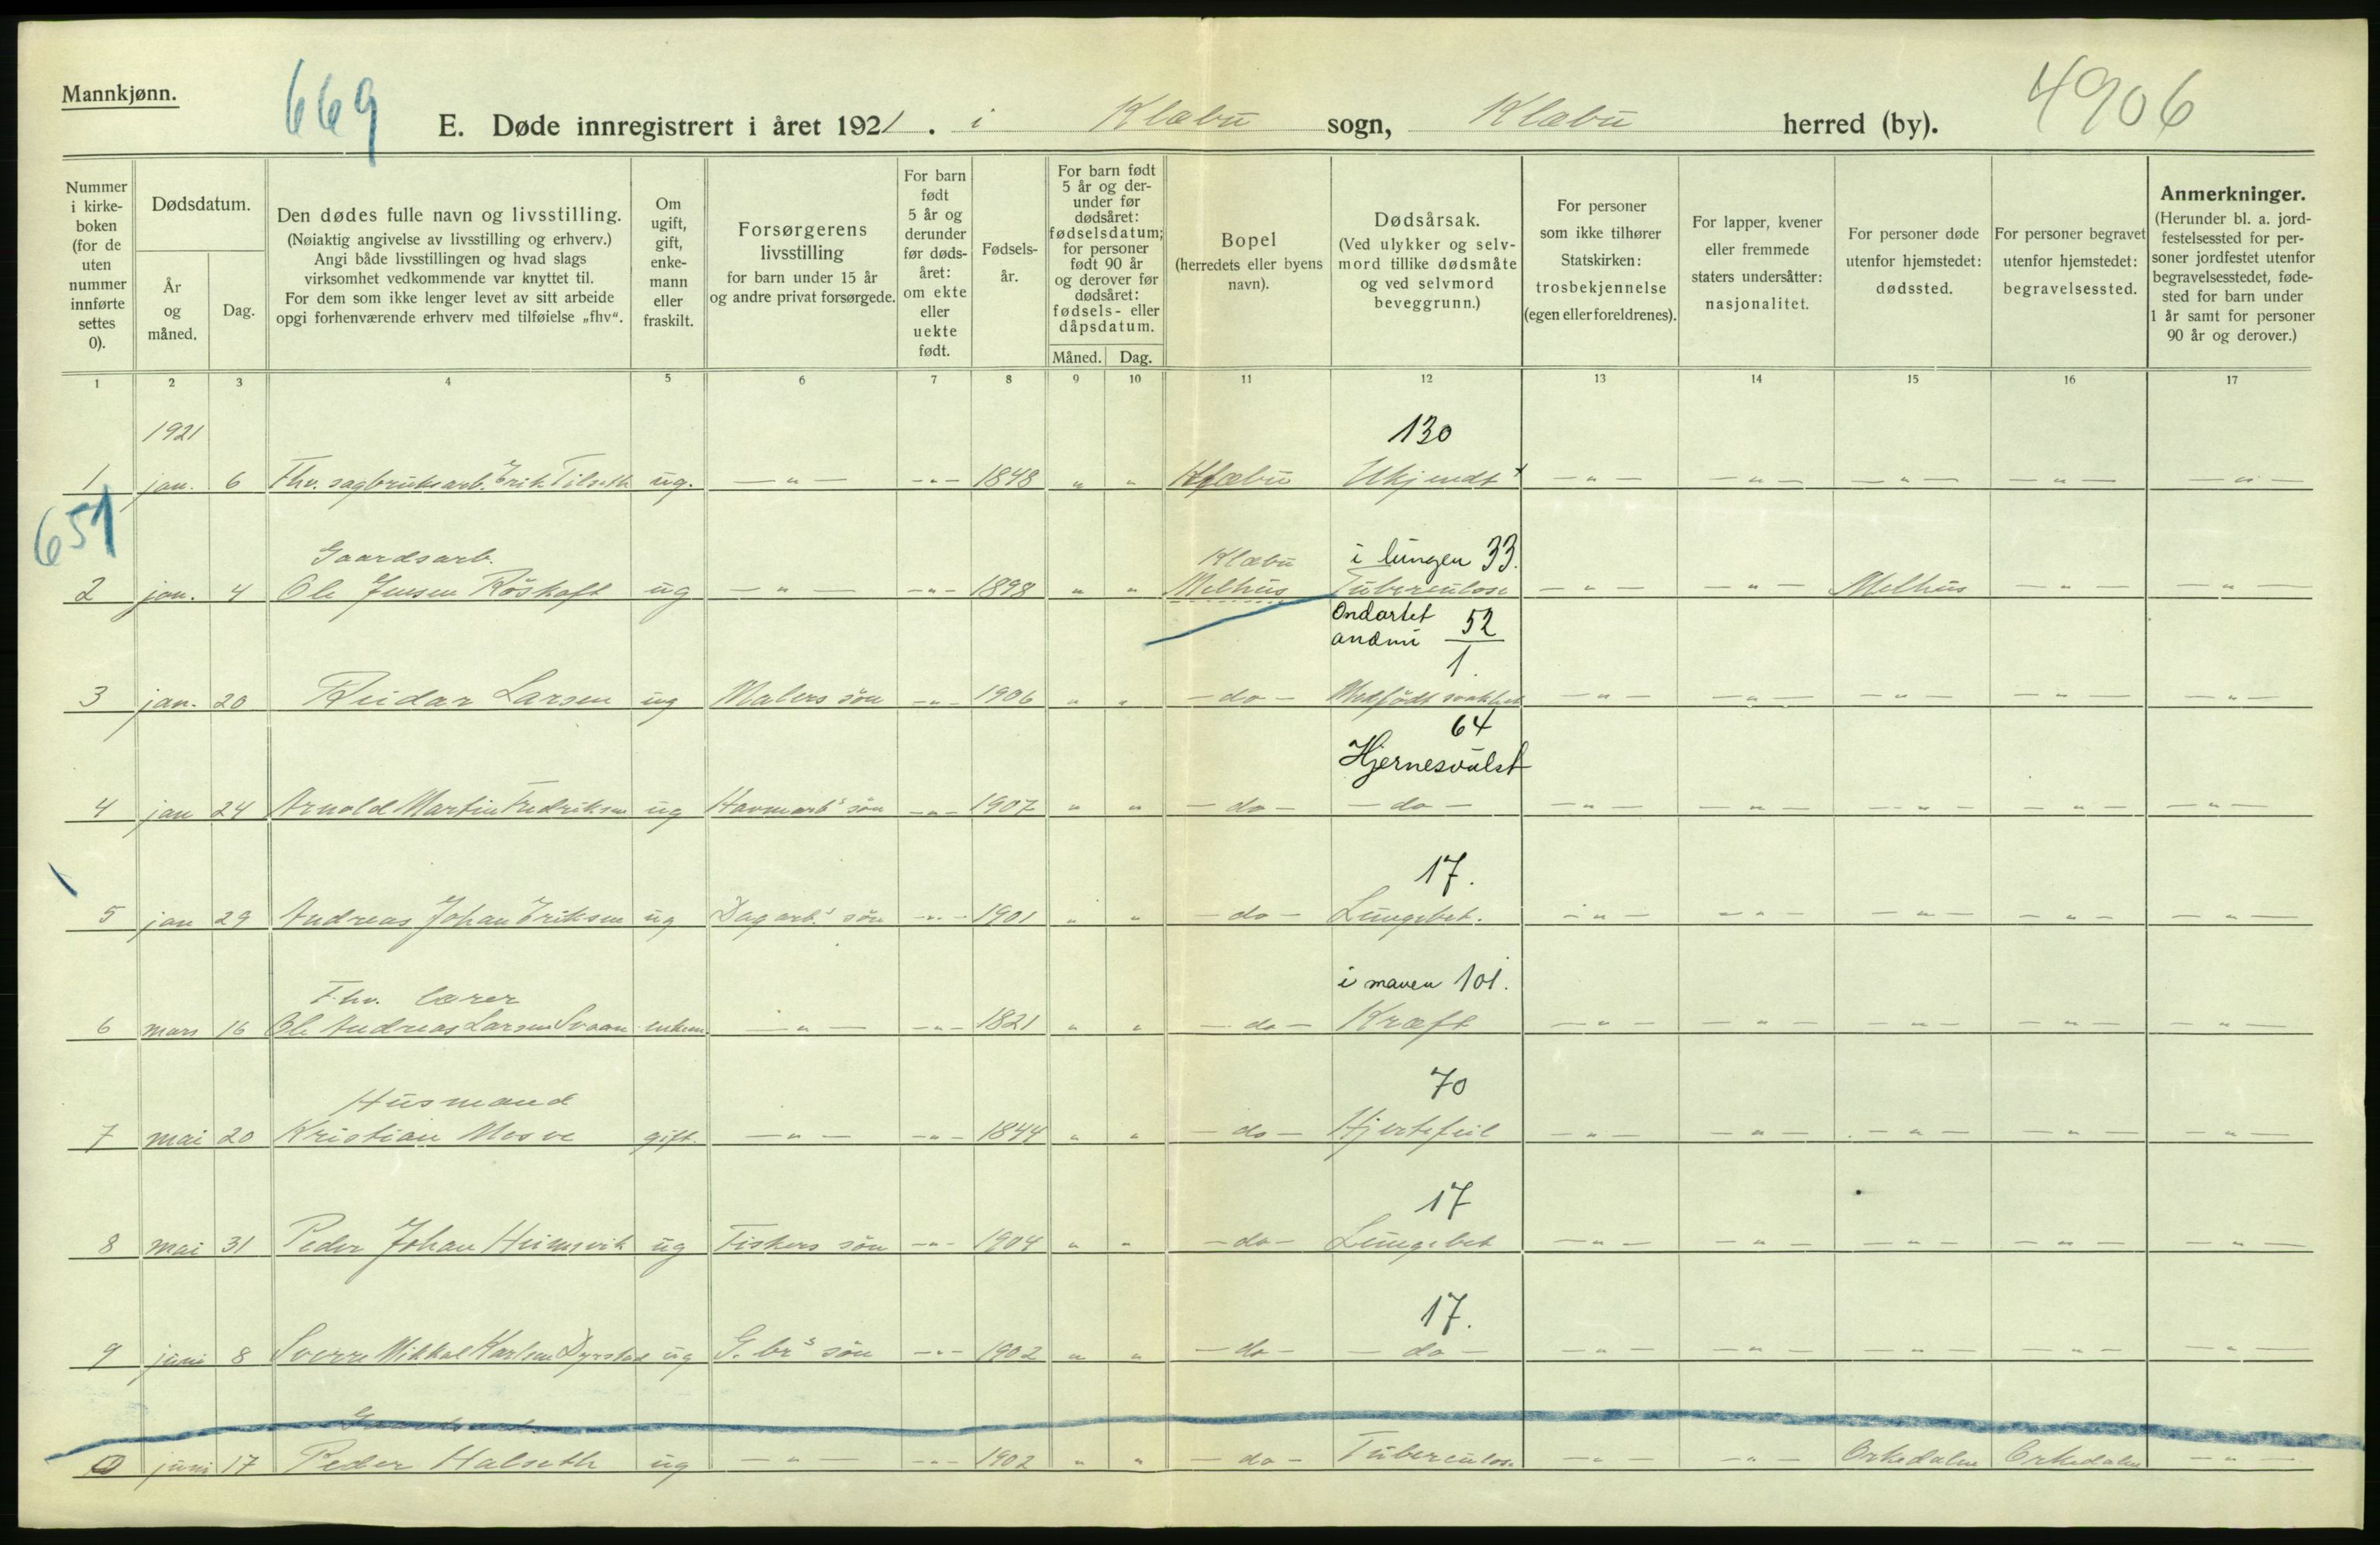 Mannkjønn.
669
4906
E. Døde innregistrert i året 1921. i Klæbu sogn, Klæbu herred (by).
Nummer i kirke-boken (for de uten nummer innførte settes 0).
Dødsdatum.
År og måned.
Dag.
Den dødes fulle navn og livsstilling.
(Nøiaktig angivelse av livsstilling og erhverv.)
Angi både livsstillingen og hvad slags
virksomhet vedkommende var knyttet til.
For dem som ikke lenger levet av sitt arbeide
opgi forhenværende erhverv med tilføielse „fhv“.
Om ugift, gift, enke-mann eller fraskilt.
Forsørgerens livsstilling
for barn under 15 år
og andre privat forsørgede.
For barn født 5 år og derunder før døds-året: om ekte eller uekte født.
Fødsels-år.
For barn født 5 år og der-under før dødsåret: fødselsdatum; for personer født 90 år og derover før dødsåret: fødsels- eller dåpsdatum.
Måned.
Dag.
Bopel
(herredets eller byens navn).
Dødsårsak.
(Ved ulykker og selv-mord tillike dødsmåte og ved selvmord beveggrunn.)
For personer som ikke tilhører Statskirken: trosbekjennelse (egen eller foreldrenes).
For lapper, kvener eller fremmede staters undersåtter: nasjonalitet.
For personer døde utenfor hjemstedet: dødssted.
For personer begravet utenfor hjemstedet: begravelsessted.
Anmerkninger.
(Herunder bl. a. jord-festelsessted for per-soner jordfestet utenfor begravelsesstedet, føde-sted for barn under 1 år samt for personer 90 år og derover.)
1 2 3 4 5 6 7 8 9 10 11 12 13 14 15 16 17
1921 130
1 jan. 6 Fhv. sagbruksarb. Erik Tilseth ug. — " — -"- 1848 " " Klæbu Ukjendt — " — — " — — " — — " — — " —
651
Gaardsarb. Klæbu i lungen 33.
2 jan. 4 Ole Jensen Röskaft ug — " — -"- 1898 " " Melhus Tuberculose — " — — " — Melhus — " — — " —
Ondartet anæmi 52
1.
3 jan. 20 Reidar Larsen ug Malers sön -"- 1906 " " — do — Medfödt svakhet — " — — " — — " — — " — — " —
64
Hjernesvulst
4 jan 24 Arnold Martin Fredriksen ug Havnearb's sön -"- 1907 " " — do — — do — — " — — " — — " — — " — — " —
17.
5 jan 29 Andreas Johan Eriksen ug Dagarb.s sön -"- 1901 " " — do — Lungebet. — " — — " — — " — — " — — " —
Fhv. lærer i maven 101.
6 mars 16 Ole Andreas Larsen Svaan enkem — " — -"- 1821 " " — do — Kræft — " — — " — — " — — " — — " —
Husmand 70
7 mai 20 Kristian Mosve gift. — " — -"- 1844 " " — do — Hjertefeil — " — — " — — " — — " — — " —
17
8 mai 31 Peder Johan Heimsvik ug Fiskers sön -"- 1904 " " — do — Lungebet — " — — " — — " — — " — — " —
17.
9 juni 8 Sverre Mikkal Karlsen Dyrstad ug G. br's sön -"- 1902 " " — do — — do — — " — — " — — " — — " — — " —
Gaardsarb.
0 juni 17 Peder Halseth ug — " — -"- 1902 " " — do — Tuberculose — " — — " — Orkedalen Orkedalen — " —